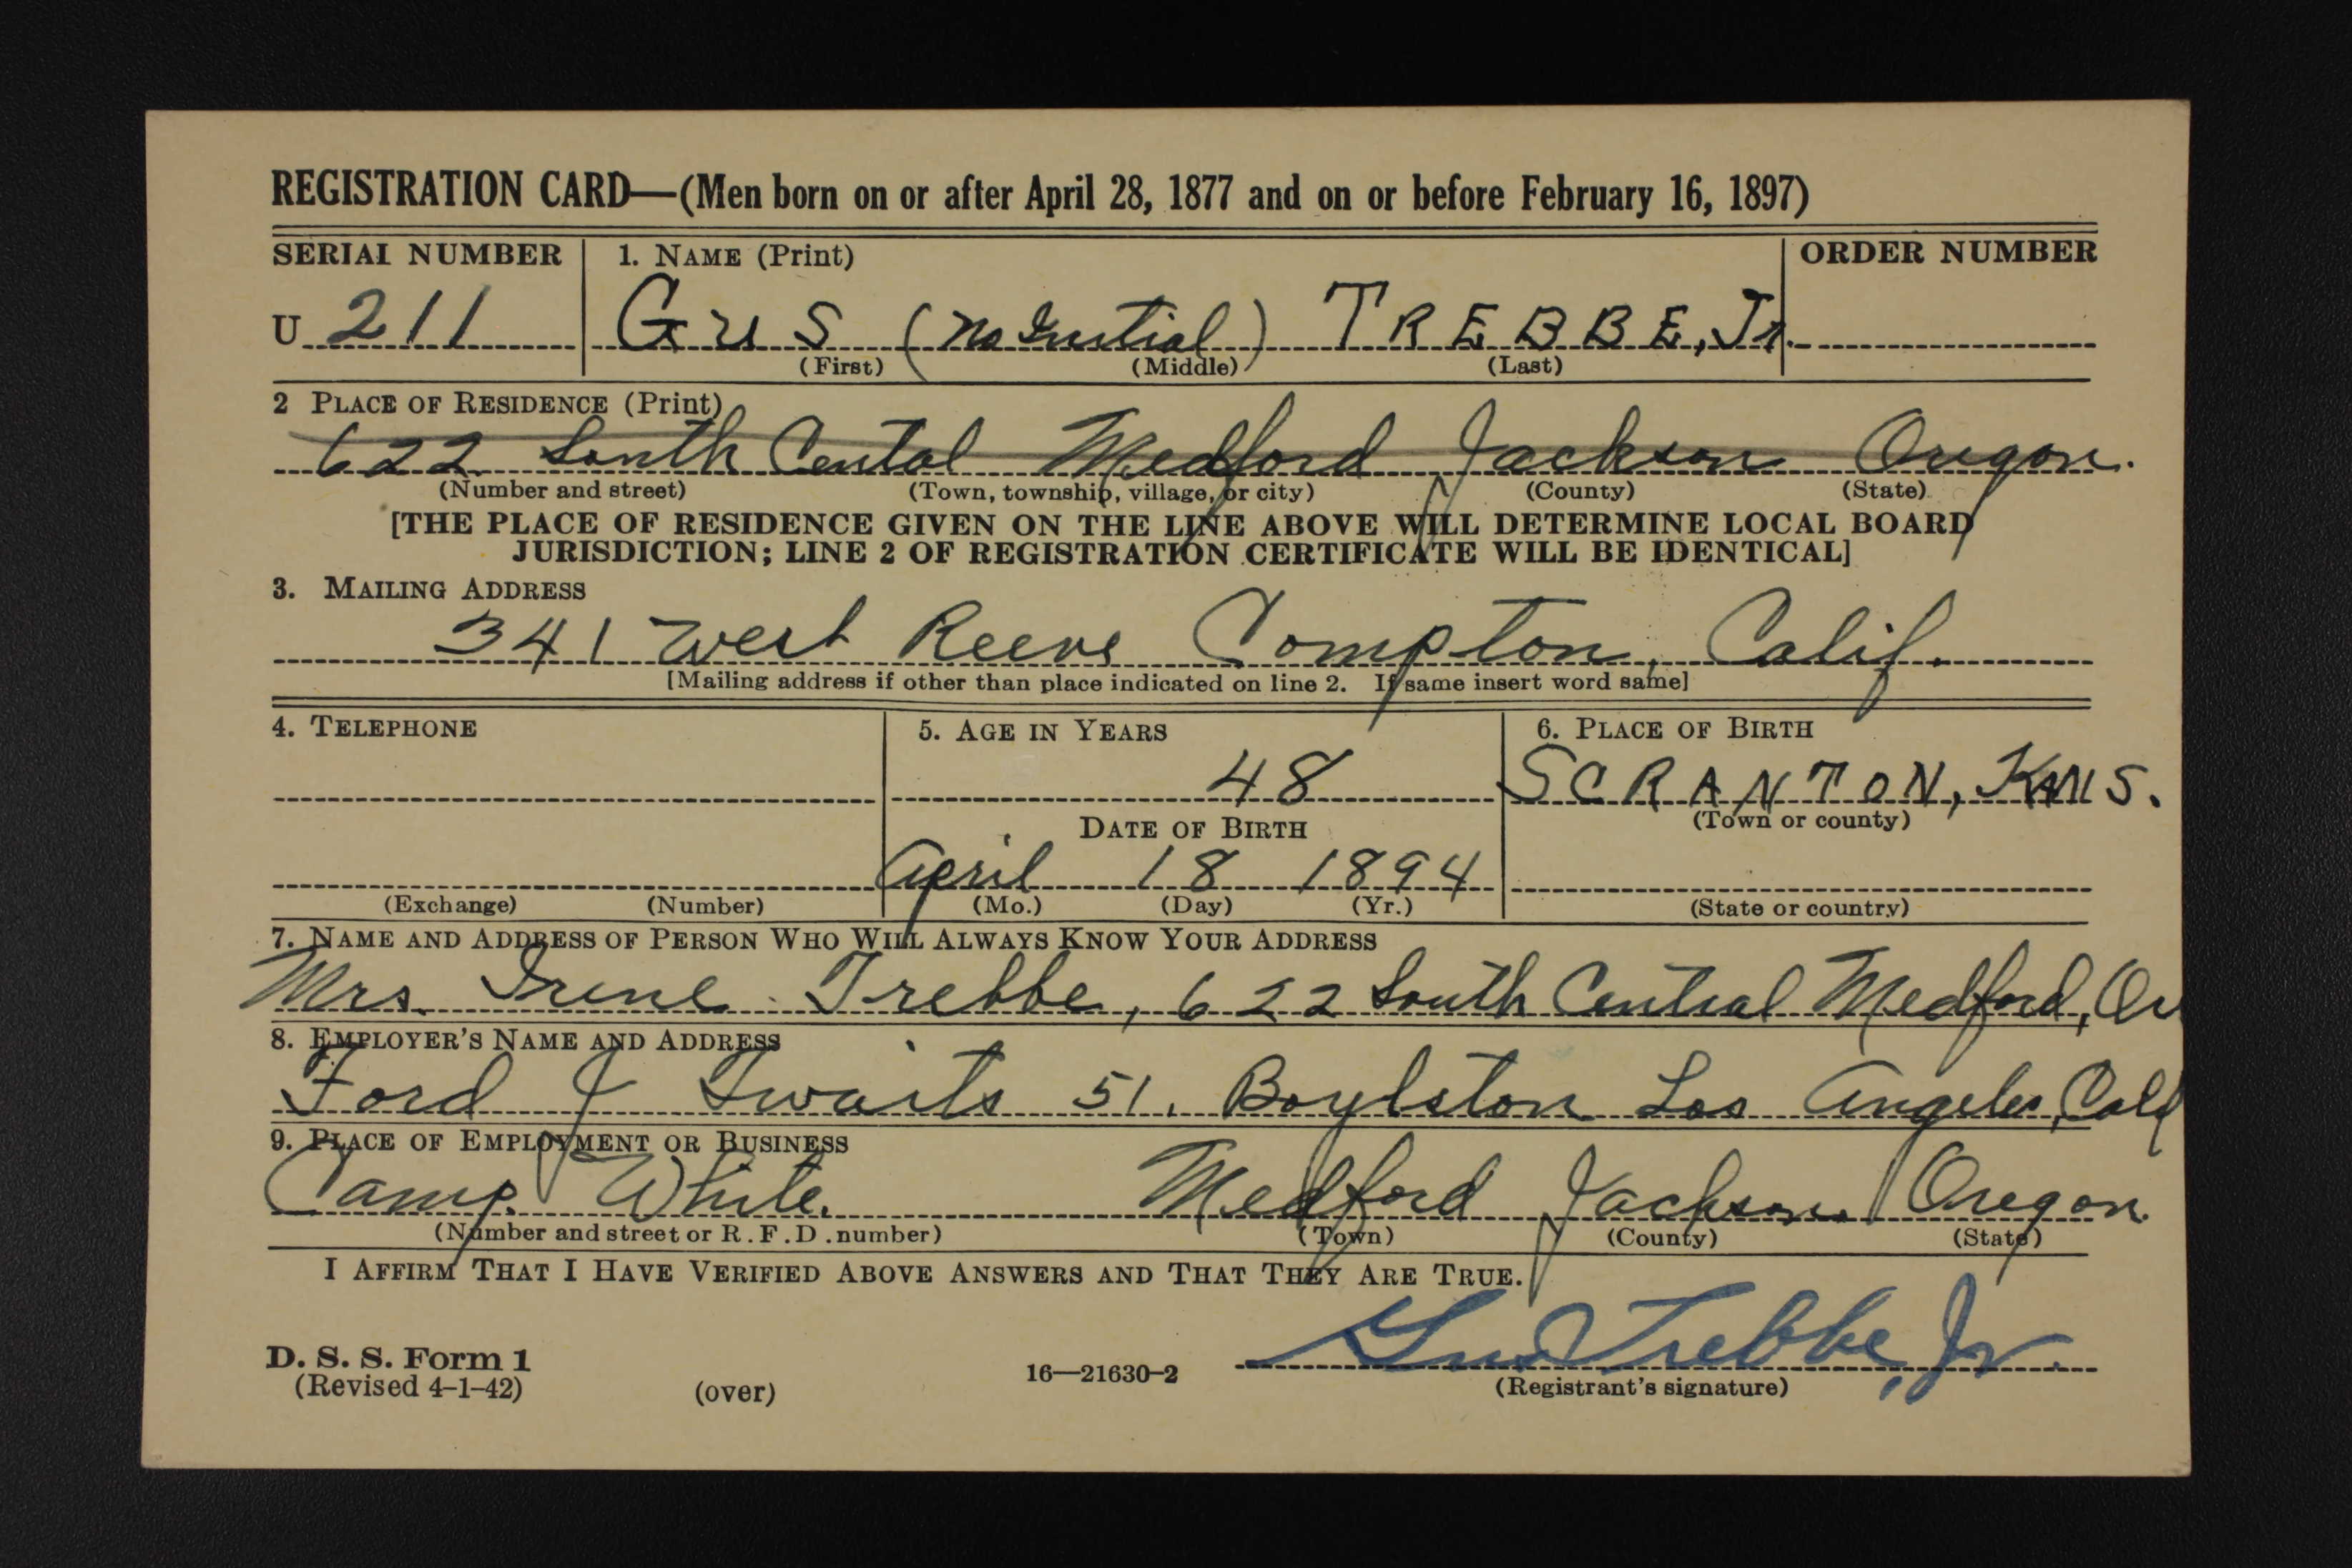 REGISTRATION CARD—(Men born on or after April 28, 1877 and on or before February 16, 1897)
SERIAL NUMBER 1. NAME (Print) ORDER NUMBER
U 211 GUS (no Initial) TREBBE, Jr.
(First) (Middle) (Last)
2 PLACE OF RESIDENCE (Print)
622 South Cental Medford Jackson Oregon.
(Number and street) (Town, township, village, or city) (County) (State)
[THE PLACE OF RESIDENCE GIVEN ON THE LINE ABOVE WILL DETERMINE LOCAL BOARD
JURISDICTION; LINE 2 OF REGISTRATION CERTIFICATE WILL BE IDENTICAL]
3. MAILING ADDRESS
341 West Reeve Compton, Calif.
[Mailing address if other than place indicated on line 2. If same insert word same]
4. TELEPHONE 5. AGE IN YEARS 6. PLACE OF BIRTH
48 SCRANTON, KANS.
DATE OF BIRTH (Town or county)
April 18 1894
(Exchange) (Number) (Mo.) (Day) (Yr.) (State or country)
7. NAME AND ADDRESS OF PERSON WHO WILL ALWAYS KNOW YOUR ADDRESS
Mrs. Irene Trebbe, 622 South Central Medford, Or
8. EMPLOYER'S NAME AND ADDRESS
Ford J Twaits 51. Boylston Los Angeles, Calf
9. PLACE OF EMPLOYMENT OR BUSINESS
Camp. White. Medford Jackson Oregon.
(Number and street or R.F.D. number) (Town) (County) (State)
I AFFIRM THAT I HAVE VERIFIED ABOVE ANSWERS AND THAT THEY ARE TRUE.
Gus Trebbe, Jr.
D. S. S. Form 1
(Revised 4-1-42) (over) 16—21630-2 (Registrant's signature)